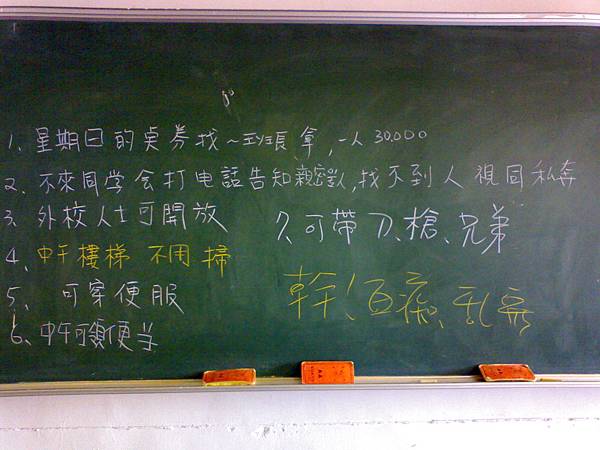 1、星期日的桌券找~班長拿,一人30,000
2、不來同学会打电話告知親密愛人,找不到人視同私奔
3、外校人士可開放
7、可帶刀、槍、兄弟
4、中午樓梯 不用 掃
5、可穿便服
幹!白痴、乱寫
6、中午可領便当